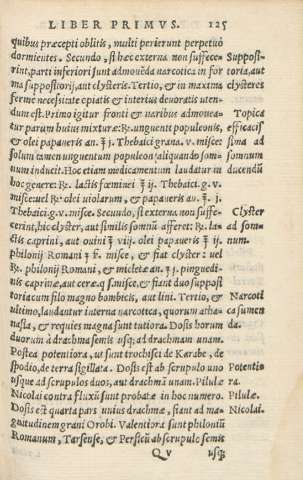 LIBER PRIMVS. 125
quibus præcepti oblitis, multi perierunt perpetuò
dormientes. Secundo, si hæc externa non suffece-
rint, parti inferiori sunt admouēda narcotica in for
ma suppositorij, aut clysteris. Tertio, & in maxima
ferme necessitate opiatis & interius deuoratis uten-
dum est. Primo igitur fronti & naribus admouea-
tur parum huius mixturæ: ℞. unguenti populeonis,
& olei papaueris an. ʒ j. Thebaici grana. v. misce:
solum tamen unguentum populeon aliquando som-
num inducit. Hoc etiam medicamentum laudatur in
hoc genere: ℞. lactis fœminei ʒ ij. Thebaici. g. v.
misce: uel ℞. olei uiolarum, & papaueris an. ʒ j.
Thebaici. g. v. misce. Secundo, si externa non suffe-
cerint, hic clyster, aut similis somnū afferet: ℞. la-
ctis caprini, aut ouini ʒ viij. olei papaueris ʒ ij.
philonij Romani ʒ ß. misce, & fiat clyster: uel
℞. philonij Romani, & micletæ an. ʒ j. pinguedi-
nis caprinæ, aut ceræ q. s. misce, & fiant duo supposi
toria cum filo magno bombicis, aut lini. Tertio, &
ultimo, laudantur interna narcotica, quorum atha-
nasia, & requies magna sunt tutiora. Dosis horum
duorum à drachma semis usq; ad drachmam unam.
Postea potentiora, ut sunt trochisci de Karabe, de
spodio, de terra sigillata. Dosis est ab scrupulo uno
usque ad scrupulos duos, aut drachmā unam. Pilulæ
Nicolai contra fluxū sunt probatæ in hoc numero.
Dosis est quarta pars unius drachmæ, fiant ad ma-
gnitudinem grani Orobi. Valentiora sunt philoniū
Romanum, Tarsense, & Persicū ab scrupulo semis
Q v usq;
Supposi-
toria, aut
clysteres
Topica
efficacis
sima ad
somnum
ducendū
Clyster
ad som-
num.
Narcoti
ca sumen
da.
Potentio
ra.
Pilulæ
Nicolai.